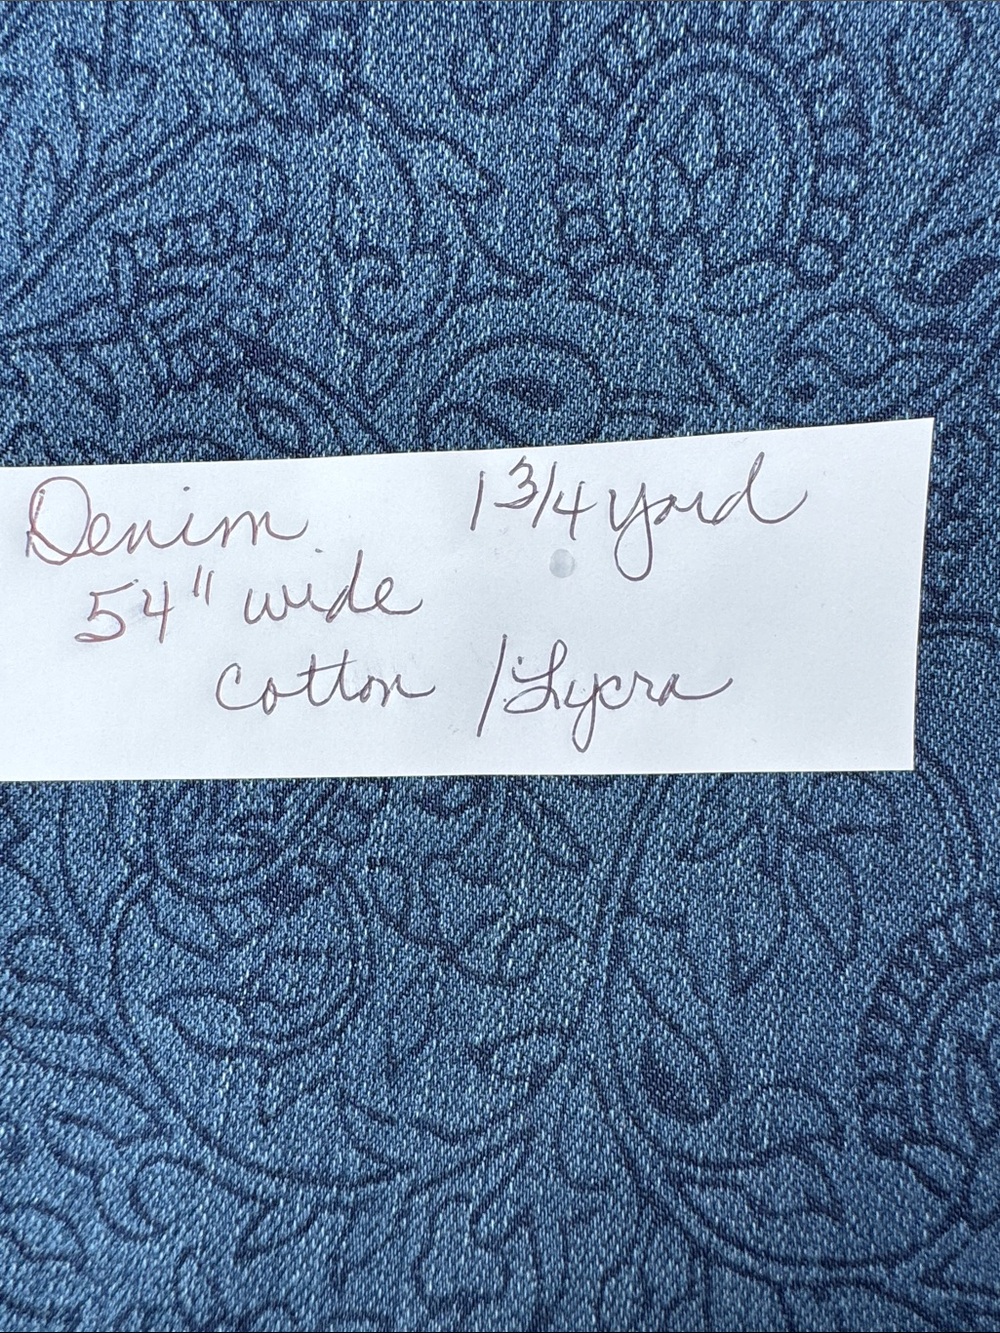 Denim 1 3/4 yard
54" wide
cotton / Lycra